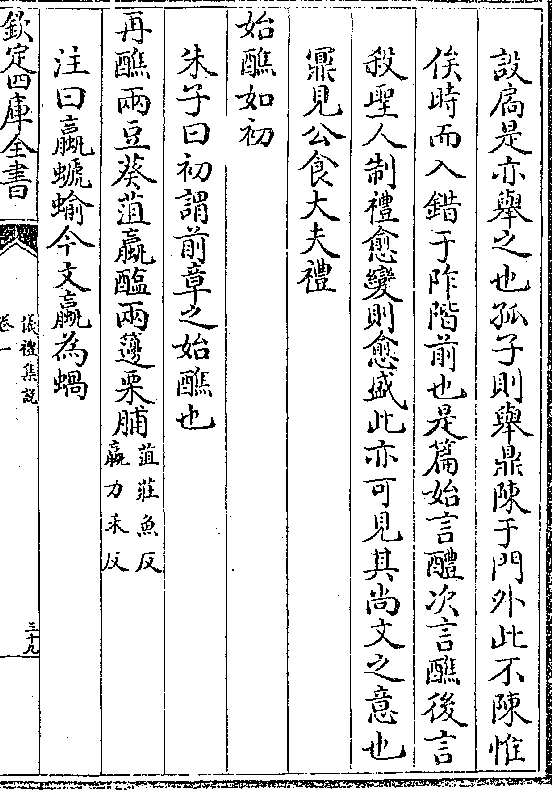 設扃是亦舉之也孤子則舉鼎陳于門外此不陳惟
俟時而入錯于阼階前也是篇始言醴次言醮後言
殺聖人制禮愈變則愈盛此亦可見其尚文之意也
鼏見公食大夫禮
始醮如初
朱子曰初謂前章之始醮也
再醮兩豆葵菹蠃醢兩籩栗脯菹莊魚反
蠃力禾反
注曰蠃螔蝓今文蠃為蝸
欽定四庫全書
儀禮集説
卷一
三十九